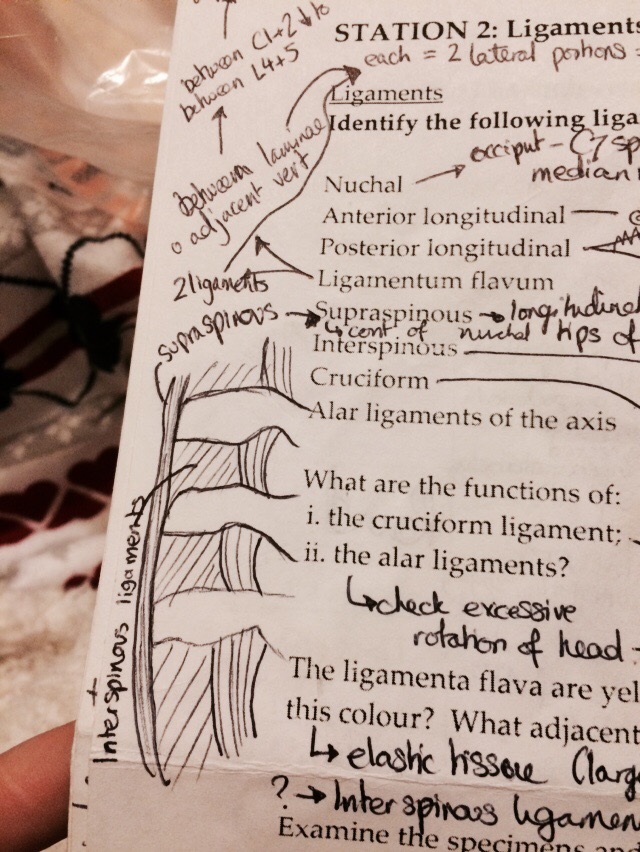 STATION 2: Ligaments
each = 2 lateral portions =
between C1+2 ↓ to
between L4+5
Ligaments
Identify the following liga
between laminae
o adjacent vert
occiput - C7 sp
median
Nuchal
Anterior longitudinal
Posterior longitudinal
2 ligaments
Ligamentum flavum
supraspinous → Supraspinous → longitudinal
↳ cont of nuchal tips of
Interspinous
Cruciform
Alar ligaments of the axis
What are the functions of:
i. the cruciform ligament;
ii. the alar ligaments?
↳ check excessive
rotation of head -
Interspinous ligaments
The ligamenta flava are yel
this colour? What adjacent
↳ elastic tissue (larg
? → Interspinous ligamen
Examine the specimens and